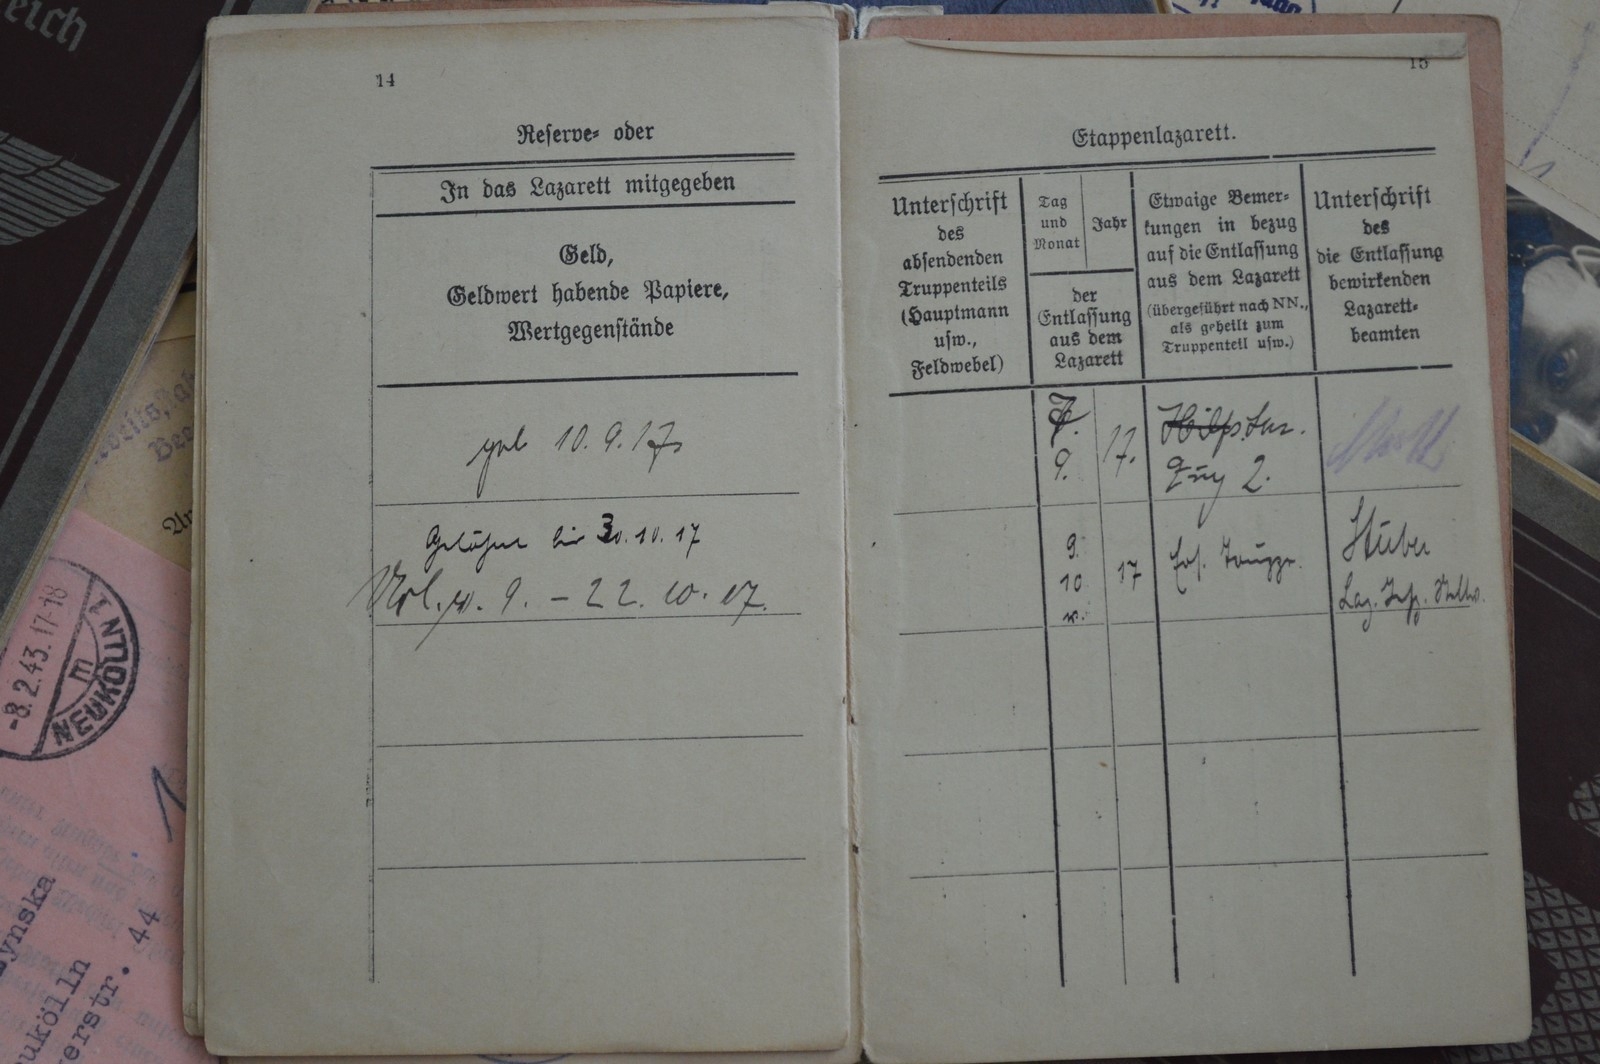 eich
14
Reserve- oder
In das Lazarett mitgegeben
Geld,
Geldwert habende Papiere,
Wertgegenstände
10. 9. 17
Gelöhnt bis 30. 10. 17
9. – 22. 10. 17.
15
Etappenlazarett.
Unterschrift
des
absendenden
Truppenteils
(Hauptmann
usw.,
Feldwebel)
Tag
und
Monat
Jahr
der
Entlassung
aus dem
Lazarett
Etwaige Bemer-
kungen in bezug
auf die Entlassung
aus dem Lazarett
(übergeführt nach NN.,
als geheilt zum
Truppenteil usw.)
Unterschrift
des
die Entlassung
bewirkenden
Lazarett-
beamten
7.
9.
17.
Zug 2.
9.
10
17
Ers. Truppe.
Stüber
Laz. Insp. Stellv.
-8.2.43.17-18
NEUKÖLLN 1
m
ynska
ukölln
erstr. 44